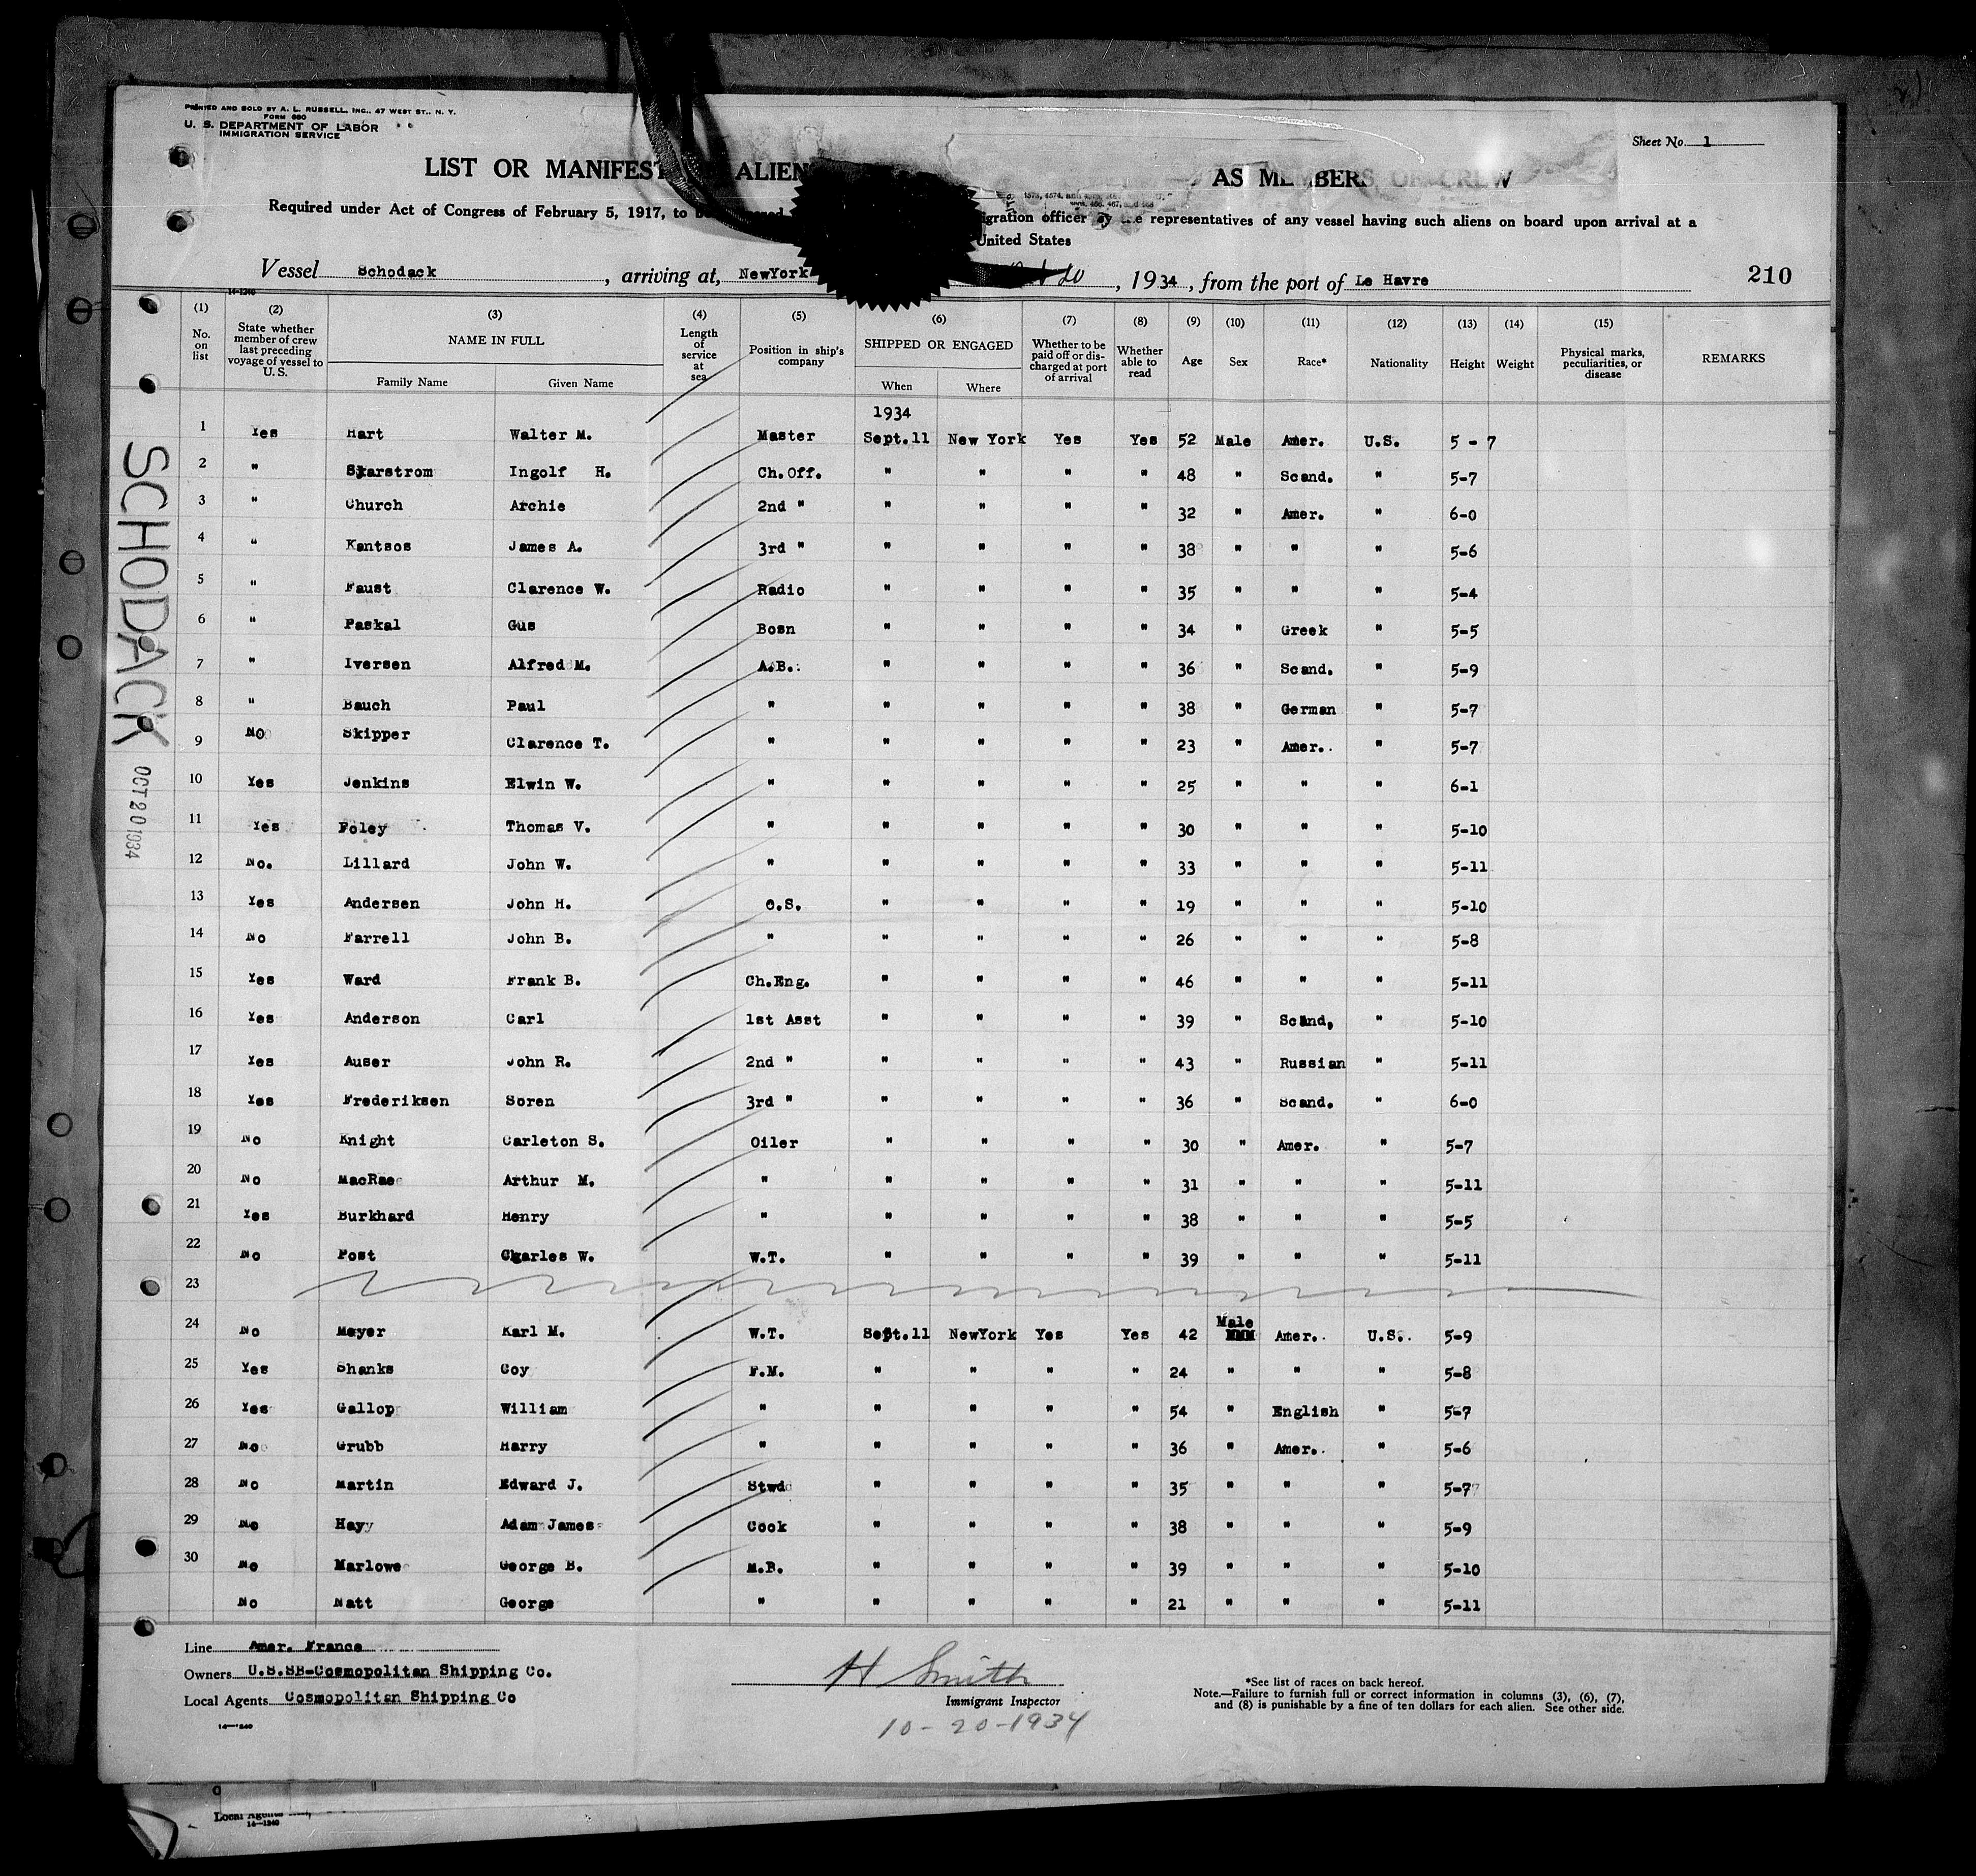 PRINTED AND SOLD BY A. L. RUSSELL, INC., 47 WEST ST., N. Y.
FORM 680
U. S. DEPARTMENT OF LABOR
IMMIGRATION SERVICE
Sheet No. 1
LIST OR MANIFEST ALIEN AS MEMBERS OF CREW
Required under Act of Congress of February 5, 1917, to be officer by the representatives of any vessel having such aliens on board upon arrival at a
United States
Vessel Schodack, arriving at, NewYork 20, 1934, from the port of Le Havre 210
14-1240
(1) (2) (3) (4) (5) (6) (7) (8) (9) (10) (11) (12) (13) (14) (15)
No. on list State whether member of crew last preceding voyage of vessel to U.S. NAME IN FULL Length of service at sea Position in ship's company SHIPPED OR ENGAGED Whether to be paid off or discharged at port of arrival Whether able to read Age Sex Race* Nationality Height Weight Physical marks, peculiarities, or disease REMARKS
Family Name Given Name When Where
1934
1 Yes Hart Walter M. Master Sept.11 New York Yes Yes 52 Male Amer. U.S. 5 - 7
2 " Skarstrom Ingolf H. Ch.Off. " " " " 48 " Scand. " 5-7
3 " Church Archie 2nd " " " " " 32 " Amer. " 6-0
4 " Kantsos James A. 3rd " " " " " 38 " " " 5-6
5 " Faust Clarence W. Radio " " " " 35 " " " 5-4
6 " Paskal Gus Bosn " " " " 34 " Greek " 5-5
7 " Iversen Alfred M. A.B. " " " " 36 " Scand. " 5-9
8 " Bauch Paul " " " " " 38 " German " 5-7
9 No Skipper Clarence T. " " " " " 23 " Amer. " 5-7
10 Yes Jenkins Elwin W. " " " " " 25 " " " 6-1
11 Yes Foley Thomas V. " " " " " 30 " " " 5-10
12 No. Lillard John W. " " " " " 33 " " " 5-11
13 Yes Andersen John H. O.S. " " " " 19 " " " 5-10
14 No Farrell John B. " " " " " 26 " " " 5-8
15 Yes Ward Frank B. Ch.Eng. " " " " 46 " " " 5-11
16 Yes Anderson Carl 1st Asst " " " " 39 " Scand, " 5-10
17 Yes Auser John R. 2nd " " " " " 43 " Russian " 5-11
18 Yes Frederiksen Soren 3rd " " " " " 36 " Scand. " 6-0
19 No Knight Carleton S. Oiler " " " " 30 " Amer. " 5-7
20 No MacRae Arthur M. " " " " " 31 " " " 5-11
21 Yes Burkhard Henry " " " " " 38 " " " 5-5
22 No Post Charles W. W.T. " " " " 39 " " " 5-11
23
24 No Meyer Karl M. W.T. Sept.11 NewYork Yes Yes 42 Male Amer. U.S. 5-9
25 Yes Shanks Coy F.M. " " " " 24 " " " 5-8
26 Yes Gallop William " " " " " 54 " English " 5-7
27 No Grubb Harry " " " " " 36 " Amer. " 5-6
28 No Martin Edward J. Stwd " " " " 35 " " " 5-7
29 No Hay Adam James Cook " " " " 38 " " " 5-9
30 No Marlowe George B. M.B. " " " " 39 " " " 5-10
No Natt George " " " " " 21 " " " 5-11
SCHODACK
OCT 20 1934
Line Amer. France
Owners U.S.SB-Cosmopolitan Shipping Co.
Local Agents Cosmopolitan Shipping Co
14-1240
H Smith
Immigrant Inspector
10-20-1934
*See list of races on back hereof.
Note.—Failure to furnish full or correct information in columns (3), (6), (7),
and (8) is punishable by a fine of ten dollars for each alien. See other side.
Local Agents
14-1240